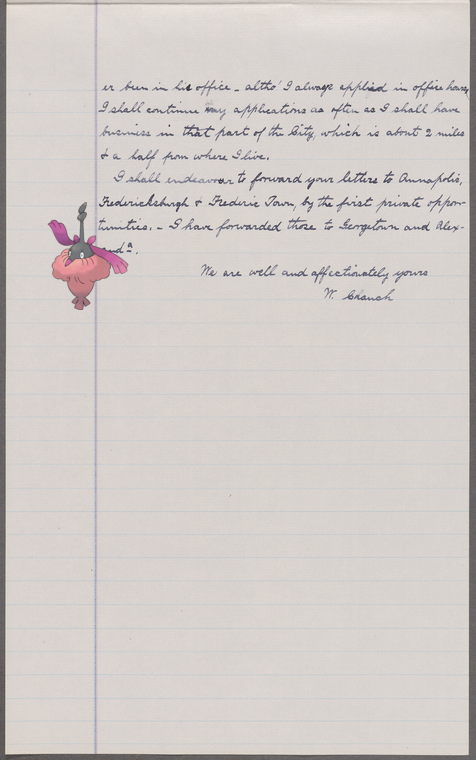 er been in his office - altho' I always applied in office hours,
I shall continue my applications as often as I shall have
business in that part of the City, which is about 2 miles
& a half from where I live.
I shall endeavour to forward your letters to Annapolis,
Fredericksburgh & Frederic Town, by the first private oppor-
tunities. - I have forwarded those to Georgetown and Alex-
We are well and affectionately yours
W. Cranch